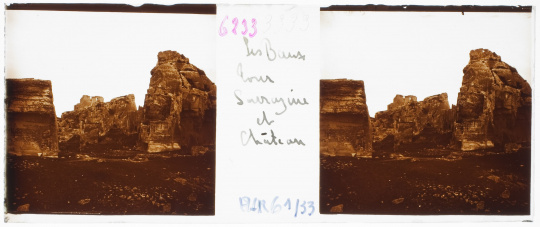 6233
Les Baux
Tour
Sarrazine
et
Château
61/33